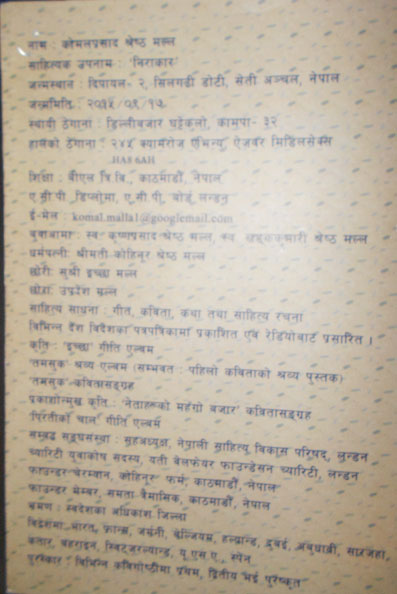 नाम : कोमलप्रसाद श्रेष्ठ मल्ल
साहित्यक उपनाम : 'निराकार'
जन्मस्थान : दिपायल- २, सिलगढी डोटी, सेती अञ्चल, नेपाल
जन्ममिति : २०१५/०९/१७
स्थायी ठेगाना : डिल्लीबजार घट्टेकुलो, कामपा- ३२
हालको ठेगाना : २४५ क्यामरोज एभिन्यु, ऐजवेर मिडिलसेक्स
HA8 6AH
शिक्षा : बीएल त्रि.वि., काठमाडौं, नेपाल
ए.सी.पी. डिप्लोमा, ए.सी.पी. बोर्ड, लन्डन
ई-मेल : komal.malla1@googlemail.com
बुवाआमा : स्व. कृष्णप्रसाद श्रेष्ठ मल्ल, स्व. खड्ककुमारी श्रेष्ठ मल्ल
धर्मपत्नी: श्रीमती कोहिनूर श्रेष्ठ मल्ल
छोरी: सुश्री इच्छा मल्ल
छोरा: उपदेश मल्ल
साहित्य साधना : गीत, कविता, कथा तथा साहित्य रचना
विभिन्न देश विदेशका पत्रपत्रिकामा प्रकाशित एवं रेडियोबाट प्रसारित ।
कृति : 'इच्छा' गीति एल्बम
'तमसुक' श्रव्य एल्बम (सम्भवत : पहिलो कविताको श्रव्य पुस्तक)
'तमसुक' कवितासङ्ग्रह
प्रकाशोन्मुख कृति : 'नेताहरूको महंगो बजार' कवितासङ्ग्रह
'पिरतीको चाल' गीति एल्बम
सम्बद्ध सङ्घसंस्था : सहअध्यक्ष, नेपाली साहित्य विकास परिषद्, लन्डन
च्यारिटी युवाकोष सदस्य, यती वेलफेयर फाउन्डेसन च्यारिटी, लन्डन
फाउन्डर चेरम्यान, कोहिनूर फर्म, काठमाडौं, नेपाल
फाउन्डर मेम्बर, समता त्रैमासिक, काठमाडौं, नेपाल
भ्रमण : स्वदेशका अधिकांश जिल्ला
विदेशमा- भारत, फ्रान्स, जर्मनी, बेल्जियम, हल्याण्ड, दुबई, अबुधाबी, सारजहाँ,
कतार, बहराइन, स्विट्जरल्यान्ड, यू.एस.ए., स्पेन
पुरस्कार : विभिन्न कविगोष्ठीमा प्रथम, द्वितीय भई पुरस्कृत